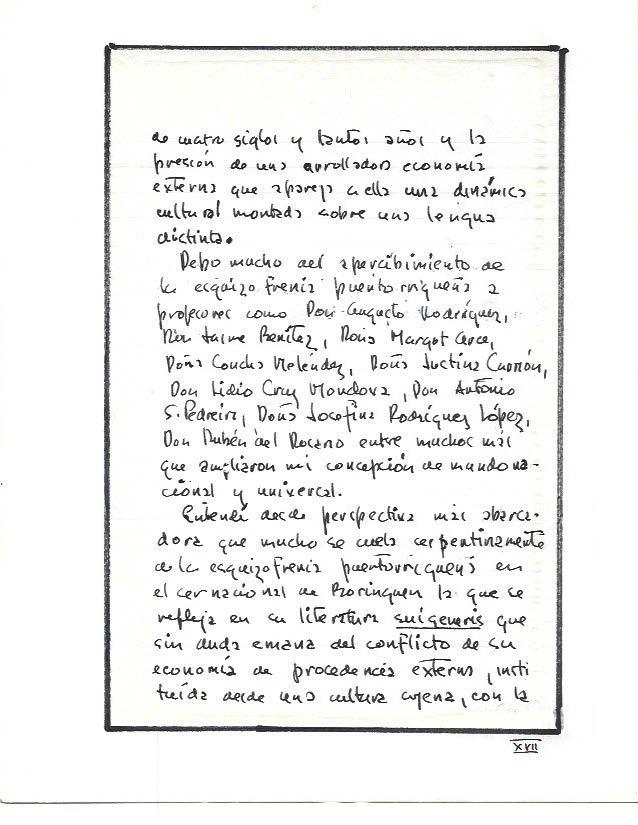 de cuatro siglos y tantos años y la
presión de una arrolladora economía
externa que apareja a ella una dinámica
cultural montada sobre una lengua
distinta.
Debo mucho del apercibimiento de
la esquizofrenia puertorriqueña a
profesores como Don Augusto Rodríguez,
Don Jaime Benítez, Doña Margot Arce,
Doña Concha Meléndez, Doña Justina Carrión,
Don Lidio Cruz Monclova, Don Antonio
S. Pedreira, Doña Josefina Rodríguez López,
Don Rubén del Rosario entre muchos más
que ampliaron mi concepción de mundo na-
cional y universal.
Entendí desde perspectiva más abarca-
dora que mucho se cuela serpentinamente
de la esquizofrenia puertorriqueña en
el ser nacional de Borinquen la que se
refleja en su literatura suigeneris que
sin duda emana del conflicto de su
economía de procedencia externa, insti
tuída desde una cultura ajena, con la
XVII